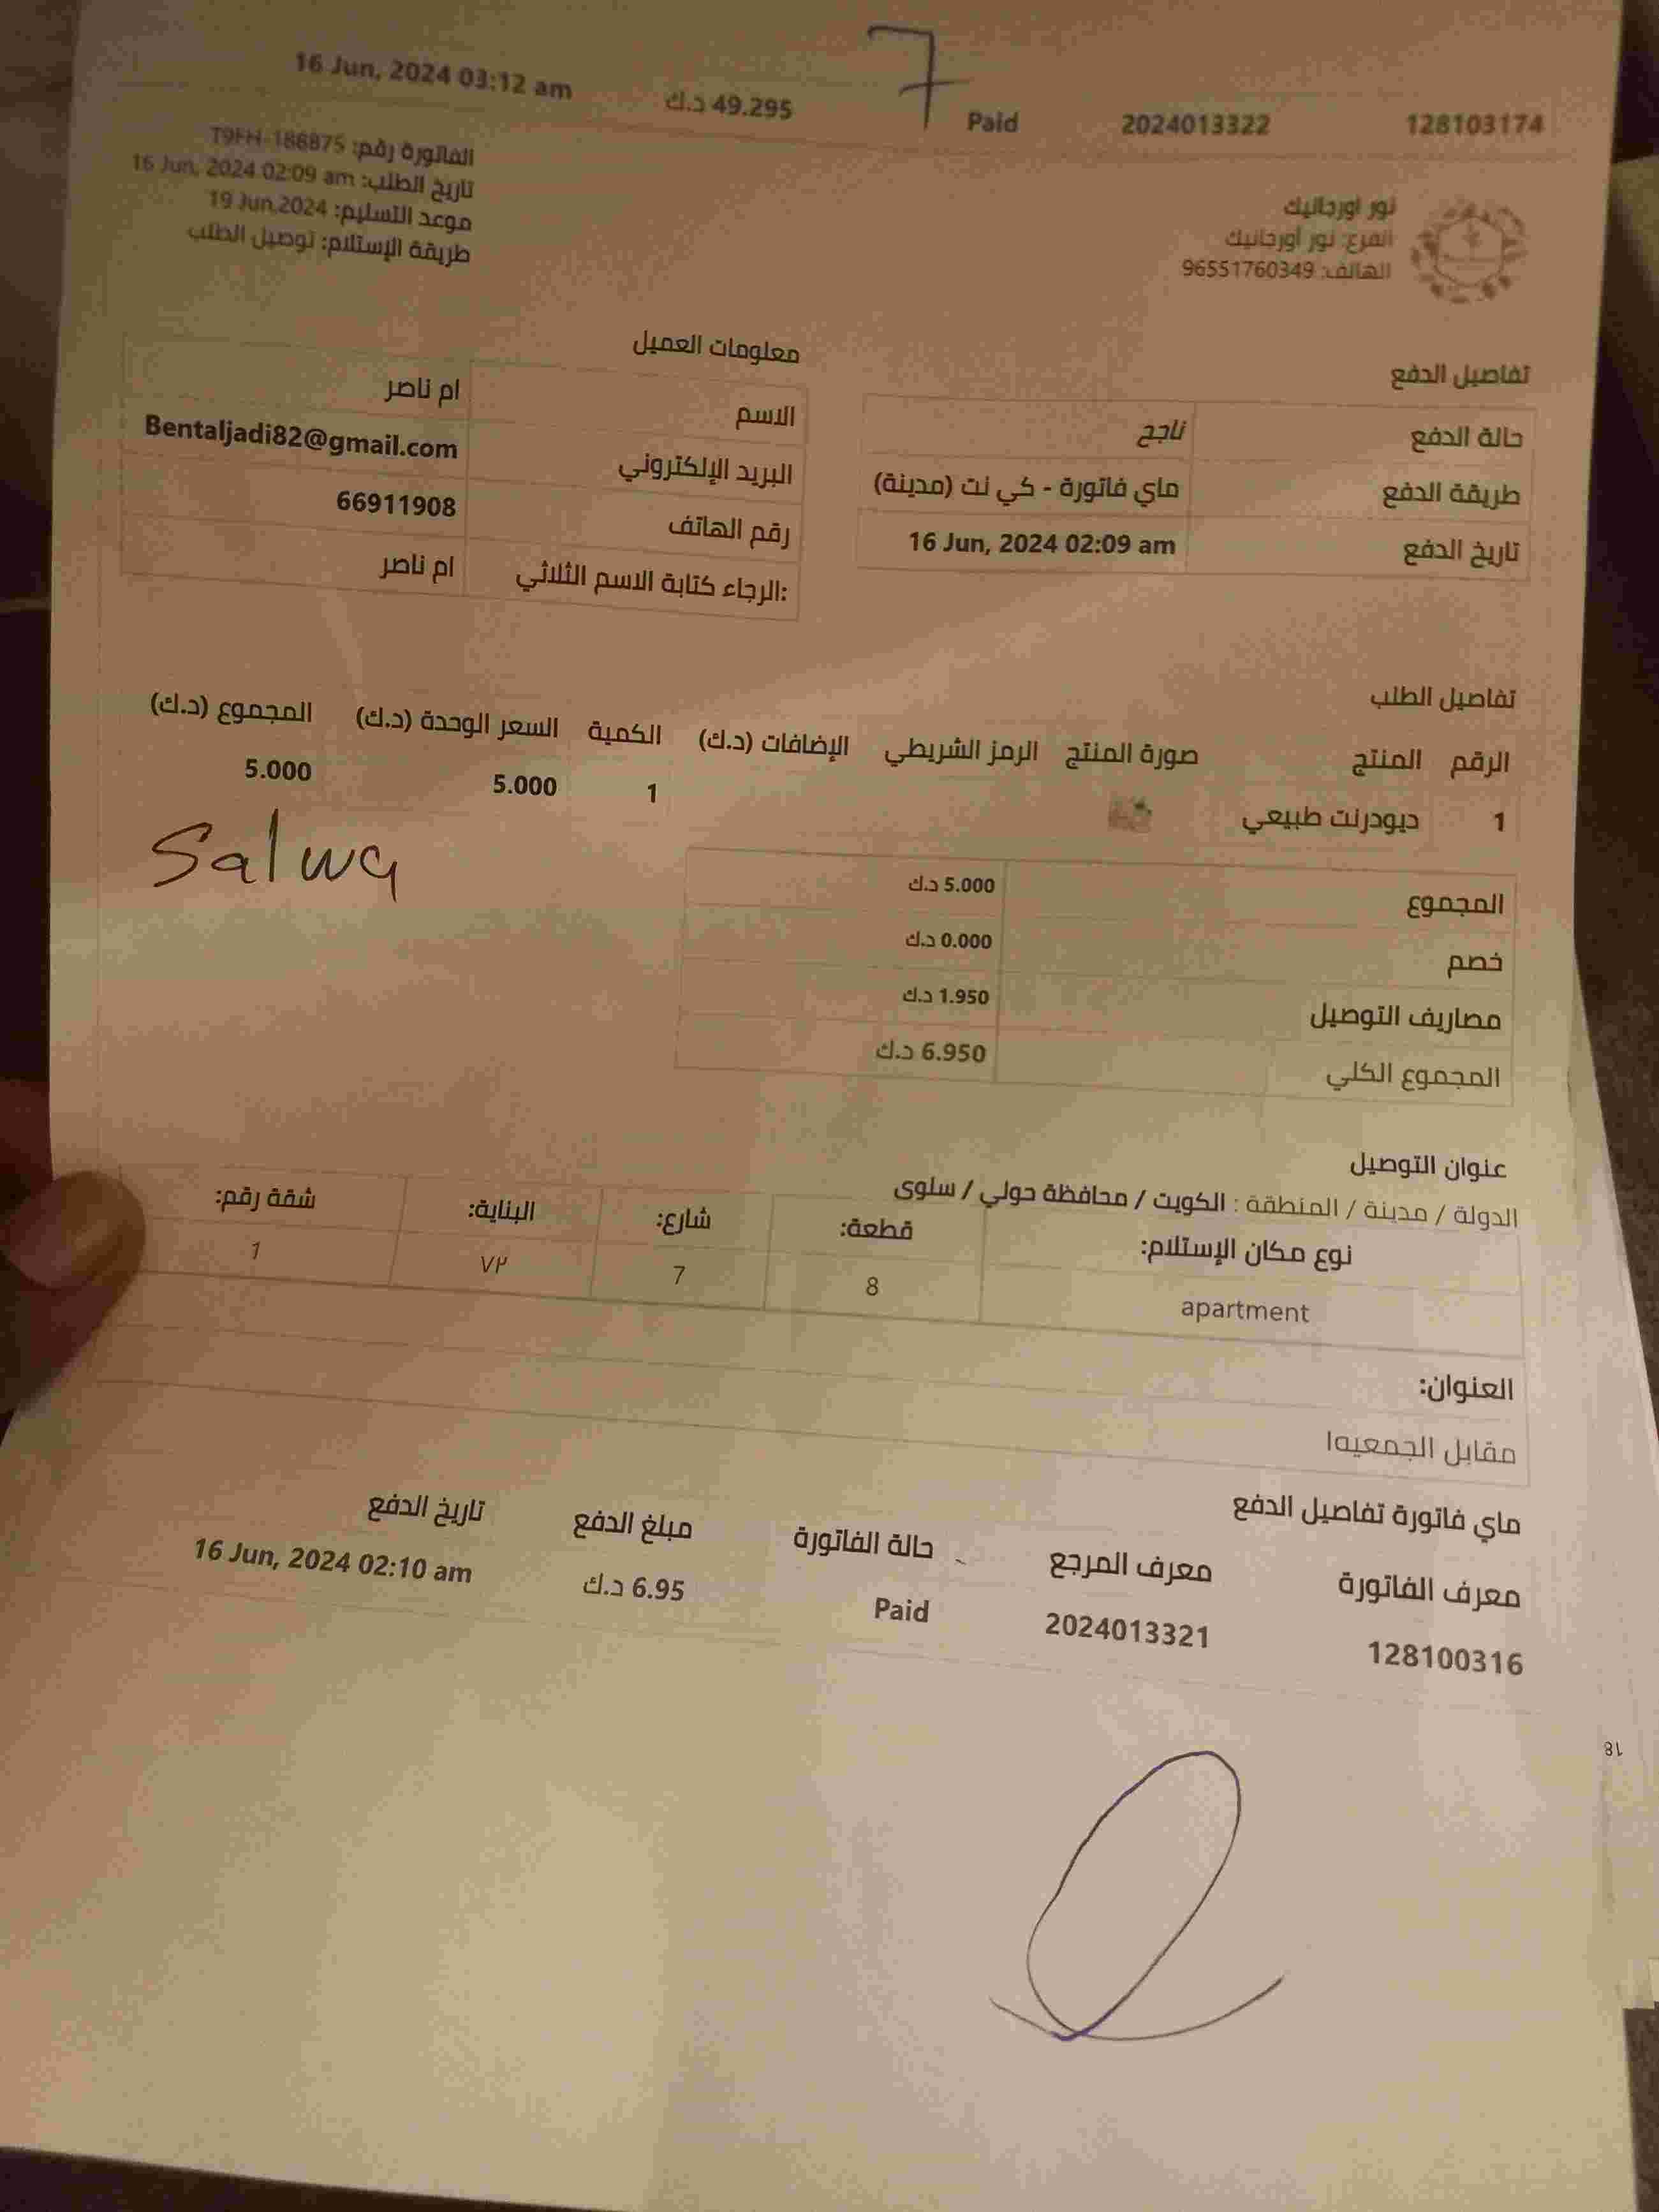 7
128103174 2024013322 Paid 49.295 د.ك 16 Jun, 2024 03:12 am
نور اورجانيك
الفرع: نور أورجانيك
الهاتف: 96551760349
الفاتورة رقم: T9FH-186875
تاريخ الطلب: 16 Jun, 2024 02:09 am
موعد التسليم: 19 Jun,2024
طريقة الإستلام: توصيل الطلب
تفاصيل الدفع
حالة الدفع ناجح
طريقة الدفع ماي فاتورة - كي نت (مدينة)
تاريخ الدفع 16 Jun, 2024 02:09 am
معلومات العميل
الاسم ام ناصر
البريد الإلكتروني Bentaljadi82@gmail.com
رقم الهاتف 66911908
الرجاء كتابة الاسم الثلاثي: ام ناصر
تفاصيل الطلب
الرقم المنتج صورة المنتج الرمز الشريطي الإضافات (د.ك) الكمية السعر الوحدة (د.ك) المجموع (د.ك)
1 ديودرنت طبيعي 1 5.000 5.000
Salwa
المجموع 5.000 د.ك
خصم 0.000 د.ك
مصاريف التوصيل 1.950 د.ك
المجموع الكلي 6.950 د.ك
عنوان التوصيل
الدولة / مدينة / المنطقة : الكويت / محافظة حولي / سلوى
نوع مكان الإستلام: قطعة: شارع: البناية: شقة رقم:
apartment 8 7 ٧٢ 1
العنوان:
مقابل الجمعيه١
ماي فاتورة تفاصيل الدفع
معرف الفاتورة معرف المرجع حالة الفاتورة مبلغ الدفع تاريخ الدفع
128100316 2024013321 Paid 6.95 د.ك 16 Jun, 2024 02:10 am
18